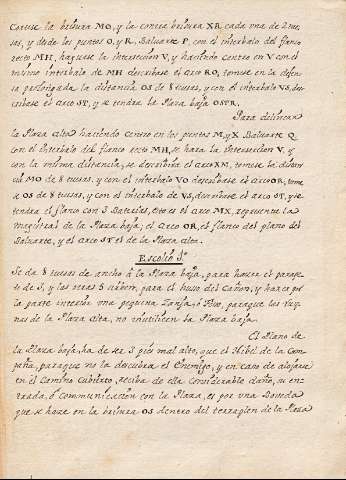 Cortese la brisura MO, y la contra brisura XR cada una de 2 tue-
sas, y desde los puntos O, y R, Baluarte P, con el interbalo del flanco
recto MH, hagase la interseccion V, y haciendo centro en V con el
mismo interbalo de MH describase el arco RO, tomese en la defen-
sa prolongada la distancia OS de 8 tuesas, y con el interbalo VS, des-
cribase el arco ST, y se tendra la Plaza baja OSTR.
Para delinear
la Plaza alta haciendo centro en los puntos M, y X Baluarte Q
con el interbalo del flanco recto MH, se hara la interseccion V, y
con la misma distancia, se describira el arco XM, tomese la distan-
cia MO de 8 tuesas, y con el interbalo VO describase el arco OR, tome-
se OS de 8 tuesas, y con el interbalo de VS, describase el arco ST, y se
tendra el flanco con 3 Baterias, esto es el arco MX, represente la
magistral de la Plaza baja; el arco OR, el flanco del plano del
Baluarte, y el arco ST el de la Plaza alta.
Escolio 1º
Se da 8 tuesas de ancho á la Plaza baja, para hacer el parape-
to de 3, y las otras 5 para el huso del Cañon, y hacer por
la parte interior una pequeña Zanja, ó Foso, paraque las Ruy-
nas de la Plaza Alta, no inutilicen la Plaza baja.
El Plano de
la Plaza baja, ha de ser 3 pies mas alto, que el Nibel de la Com-
paña, paraque no la descubra el Enemigo, y en caso de alojarse
en el Camino cubierto, reciba de ella considerable daño, su en-
trada, ó comunicacion con la Plaza, es por una Boveda
que se hace en la brisura OS dentro del terraplen de la Plaza